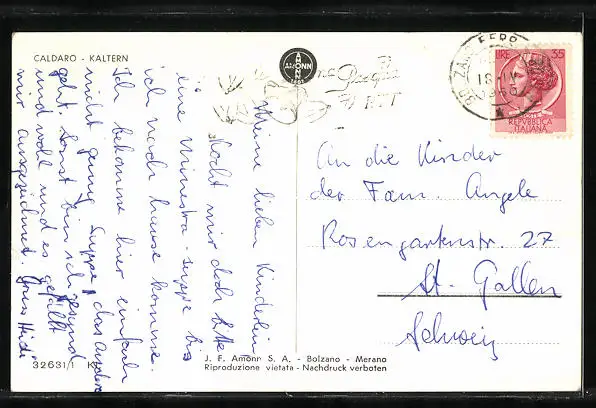 CALDARO - KALTERN
AMONN
Meine lieben Kinderlein
Kocht mir doch bitte
eine Minestra-suppe bis
ich nach hause komme.
Ich bekomme hier einfach
nicht genug Suppe, das andere
geht. Sonst bin ich gesund
und wohl und es gefällt
mir ausgezeichnet. Gruss Heidi
BOLZANO FERR
18-IV
LIRE
POSTE
REPVBBLICA
ITALIANA
An die Kinder
der Fam. Angele
Rosengartenstr. 27
St. Gallen
Schweiz
32631/1
J. F. Amonn S. A. - Bolzano - Merano
Riproduzione vietata - Nachdruck verboten